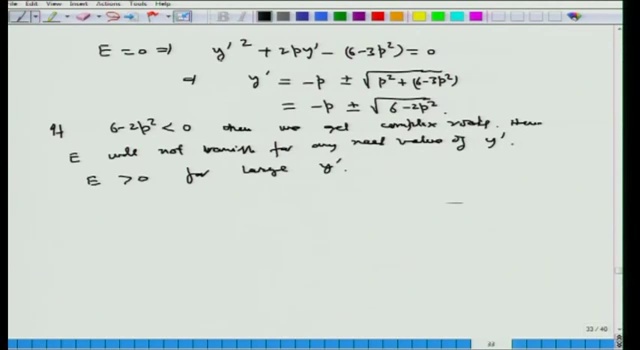 File Edit View Insert Actions Tools Help
E = 0 ⇒ y'² + 2py' - (6-3p²) = 0
⇒ y' = -p ± √p² + (6-3p²)
= -p ± √6-2p².
If 6-2p² < 0 then we get complex roots. Then
E will not vanish for any real value of y'.
E > 0 for large y'.
33 / 40
33